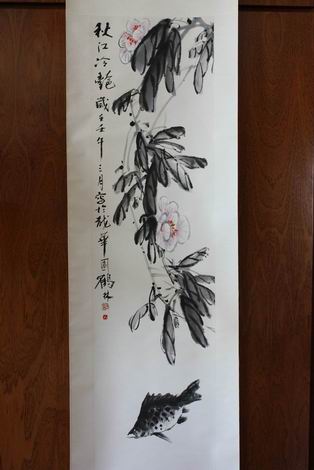 秋江冷艷 歲壬午年三月寫於龍華園 鶴林